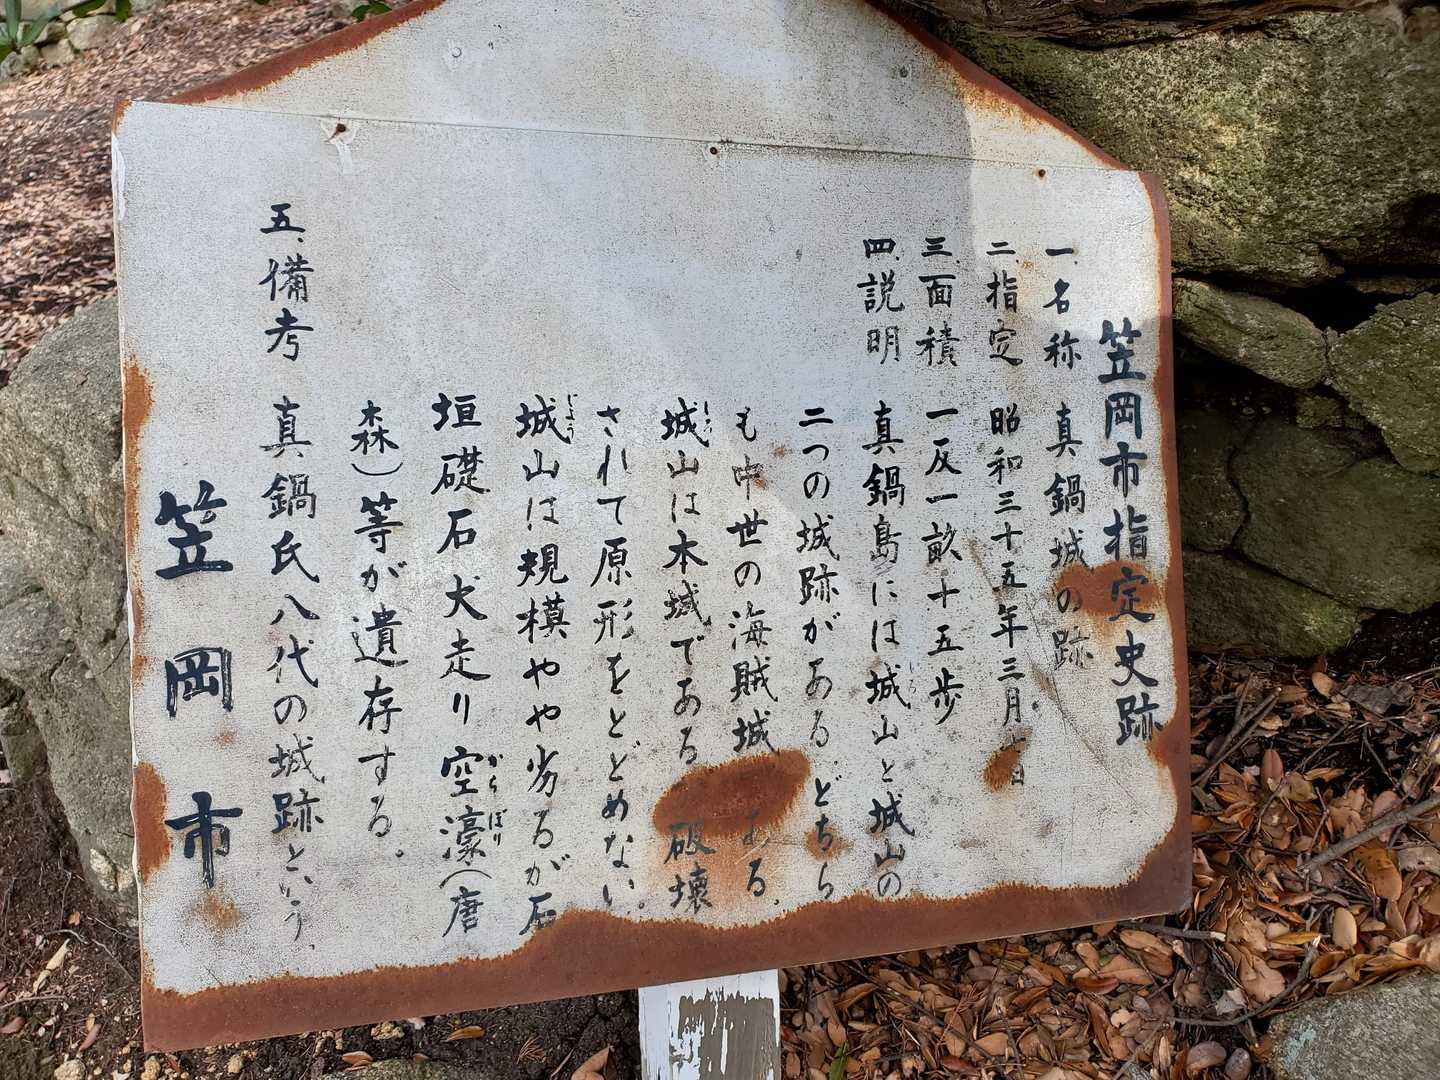 笠岡市指定史跡
一、名称 真鍋城の跡
二、指定 昭和三十五年三月 日
三、面積 一反一畝十五歩
四、説明 真鍋島には城山と城山の
しろ
二つの城跡がある どちら
も中世の海賊城 ある。
城山は本城である 破壊
しろ
されて原形をとどめない。
城山は規模やや劣るが石
じょう
垣礎石犬走り空濠(唐
からぼり
森)等が遺存する。
五、備考 真鍋氏八代の城跡という。
笠岡市